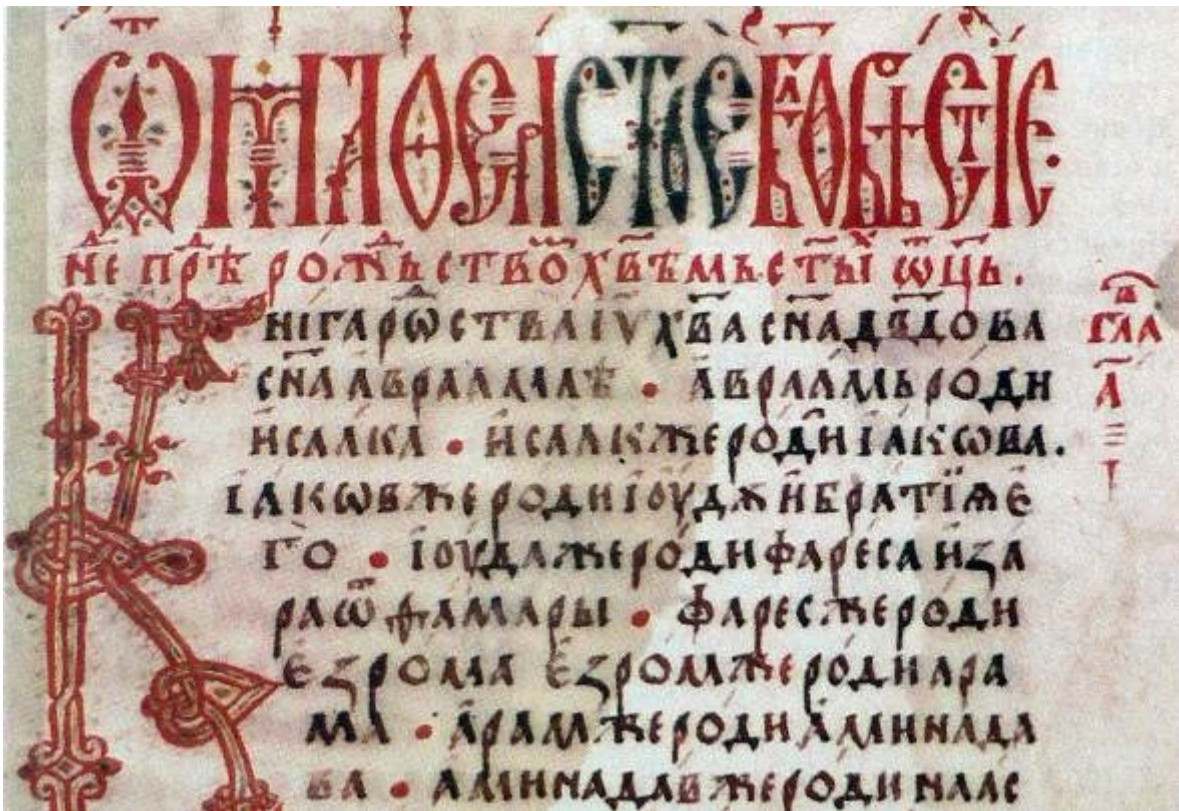 Ѿ маѳеа ст҃ое бл҃говѣстїе
нє прѣ рожьство хв҃ѣмь ст҃ы ѡц҃ь.
Книга рѡства іѵ хв҃а сн҃а дв҃дова
сн҃а авраамлѣ • авраамь роди
исаака • исаак же роди іакѡва.
іакѡв же роди іоуд ѫ и братїѫ є
го • іоуда же роди фареса и за
ра ѿ ѳамары • фарес же роди
єзрома єзром же роди ара
ма • арам же роди аминада
ва • аминадав же роди наас
гла
а҃